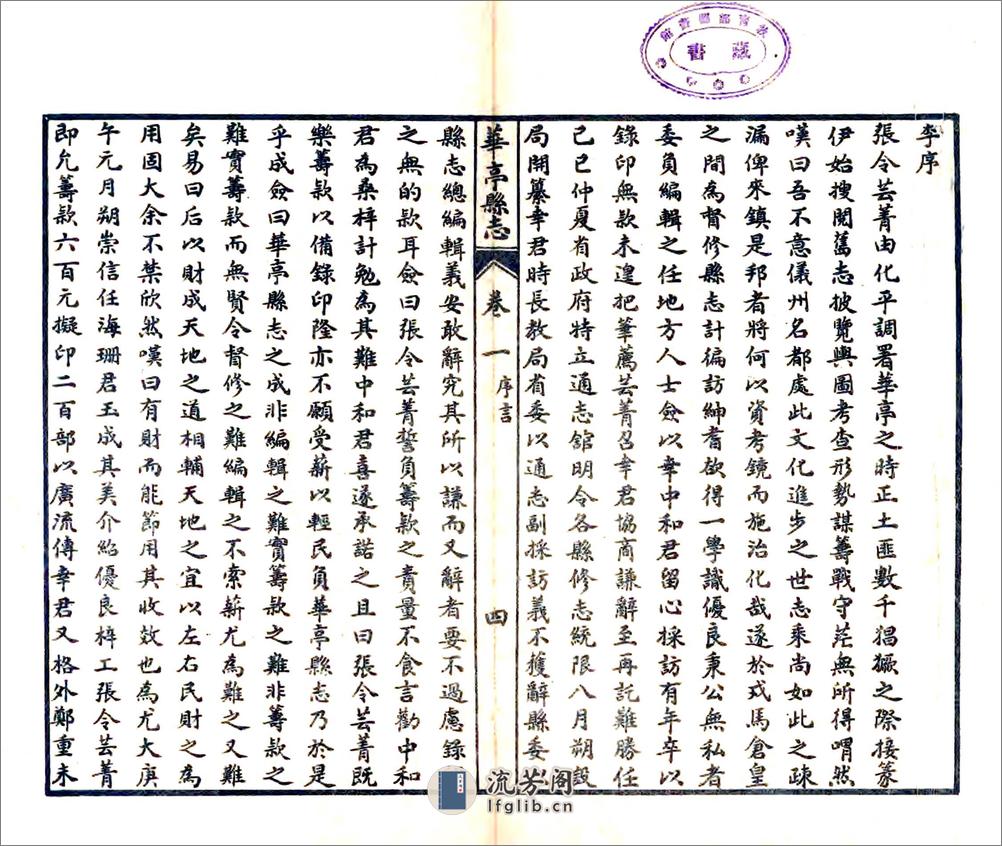 教育部圖書館
藏書
李序
張令芸菁由化平調署華亭之時正土匪數千猖獗之際接篆
伊始搜閱舊志披覽輿圖考查形勢謀籌戰守茫無所得喟然
嘆曰吾不意儀州名都處此文化進步之世志乘尚如此之疎
漏俾來鎮是邦者將何以資考鏡而施治化哉遂於戎馬倉皇
之間為督修縣志計徧訪紳耆欲得一學識優良秉公無私者
委負編輯之任地方人士僉以幸中和君留心採訪有年卒以
錄印無款未遑把筆薦芸菁召幸君協商謙辭至再託難勝任
己巳仲夏有政府特立通志舘明令各縣修志統限八月朔設
局開纂幸君時長教局省委以通志副採訪義不獲辭縣委以
華亭縣志
卷一
序言
四
縣志總編輯義安敢辭究其所以謙而又辭者要不過慮錄印
之無的款耳僉曰張令芸菁誓負籌款之責量不食言勸中和
君為桑梓計勉為其難中和君喜遂承諾之且曰張令芸菁既
樂籌款以備錄印隆亦不願受薪以輕民負華亭縣志乃於是
乎成僉曰華亭縣志之成非編輯之難實籌款之難非籌款之
難實籌款而無賢令督修之難編輯之不索薪尤為難之又難
矣易曰后以財成天地之道相輔天地之宜以左右民財之為
用固大余不禁欣然嘆曰有財而能節用其收效也為尤大庚
午元月朔崇信任海珊君玉成其美介紹優良梓工張令芸菁
即允籌款六百元擬印二百部以廣流傳幸君又格外鄭重未
流芳阁
lfglib.cn